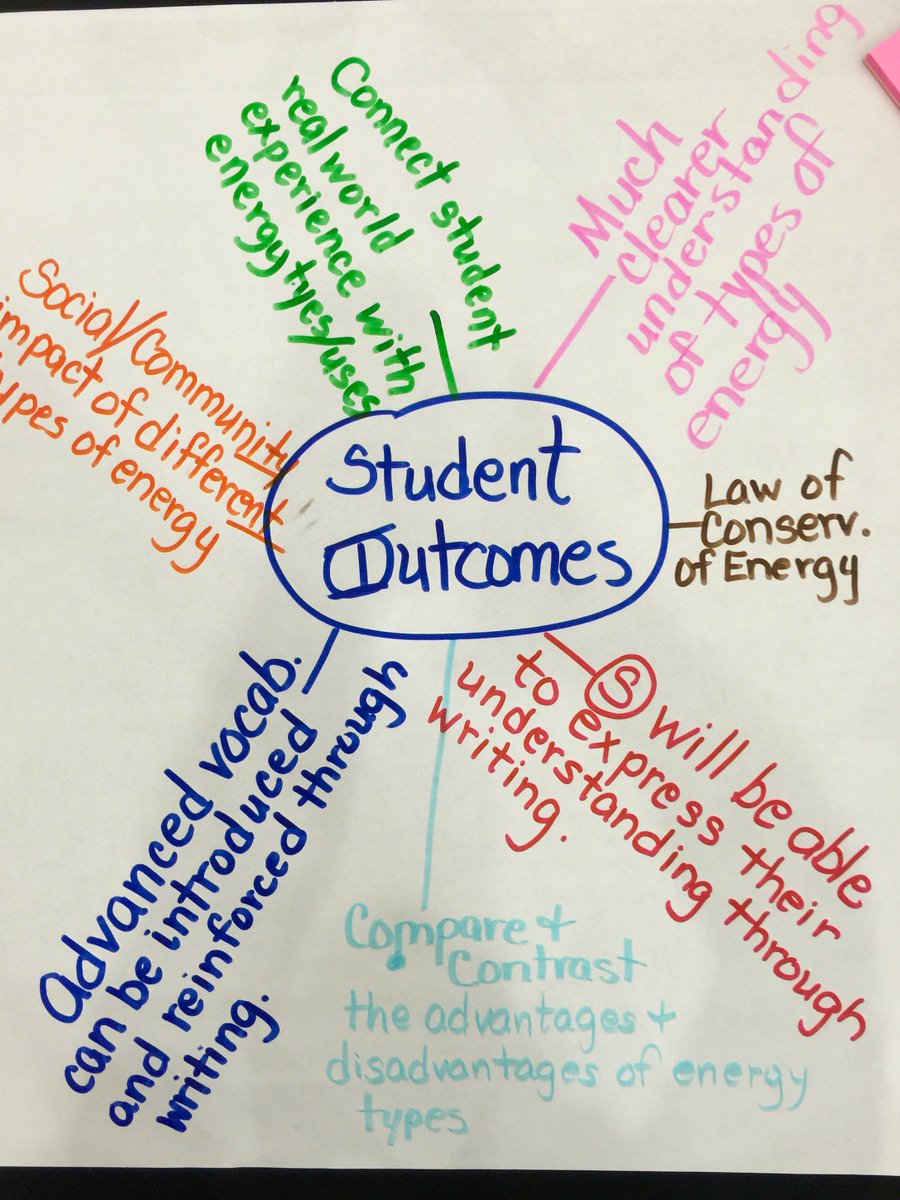 Student
Outcomes
Connect student
real world
experience with
energy tyes/uses
Much
clearer
understanding
of types of
energy
Law of
Conserv.
of Energy
S will be able
to express their
understanding through
writing.
Compare +
Contrast
the advantages +
disadvantages of energy
types
Advanced vocab.
can be introduced
and reinforced through
writing.
Social/Community
impact of different
types of energy